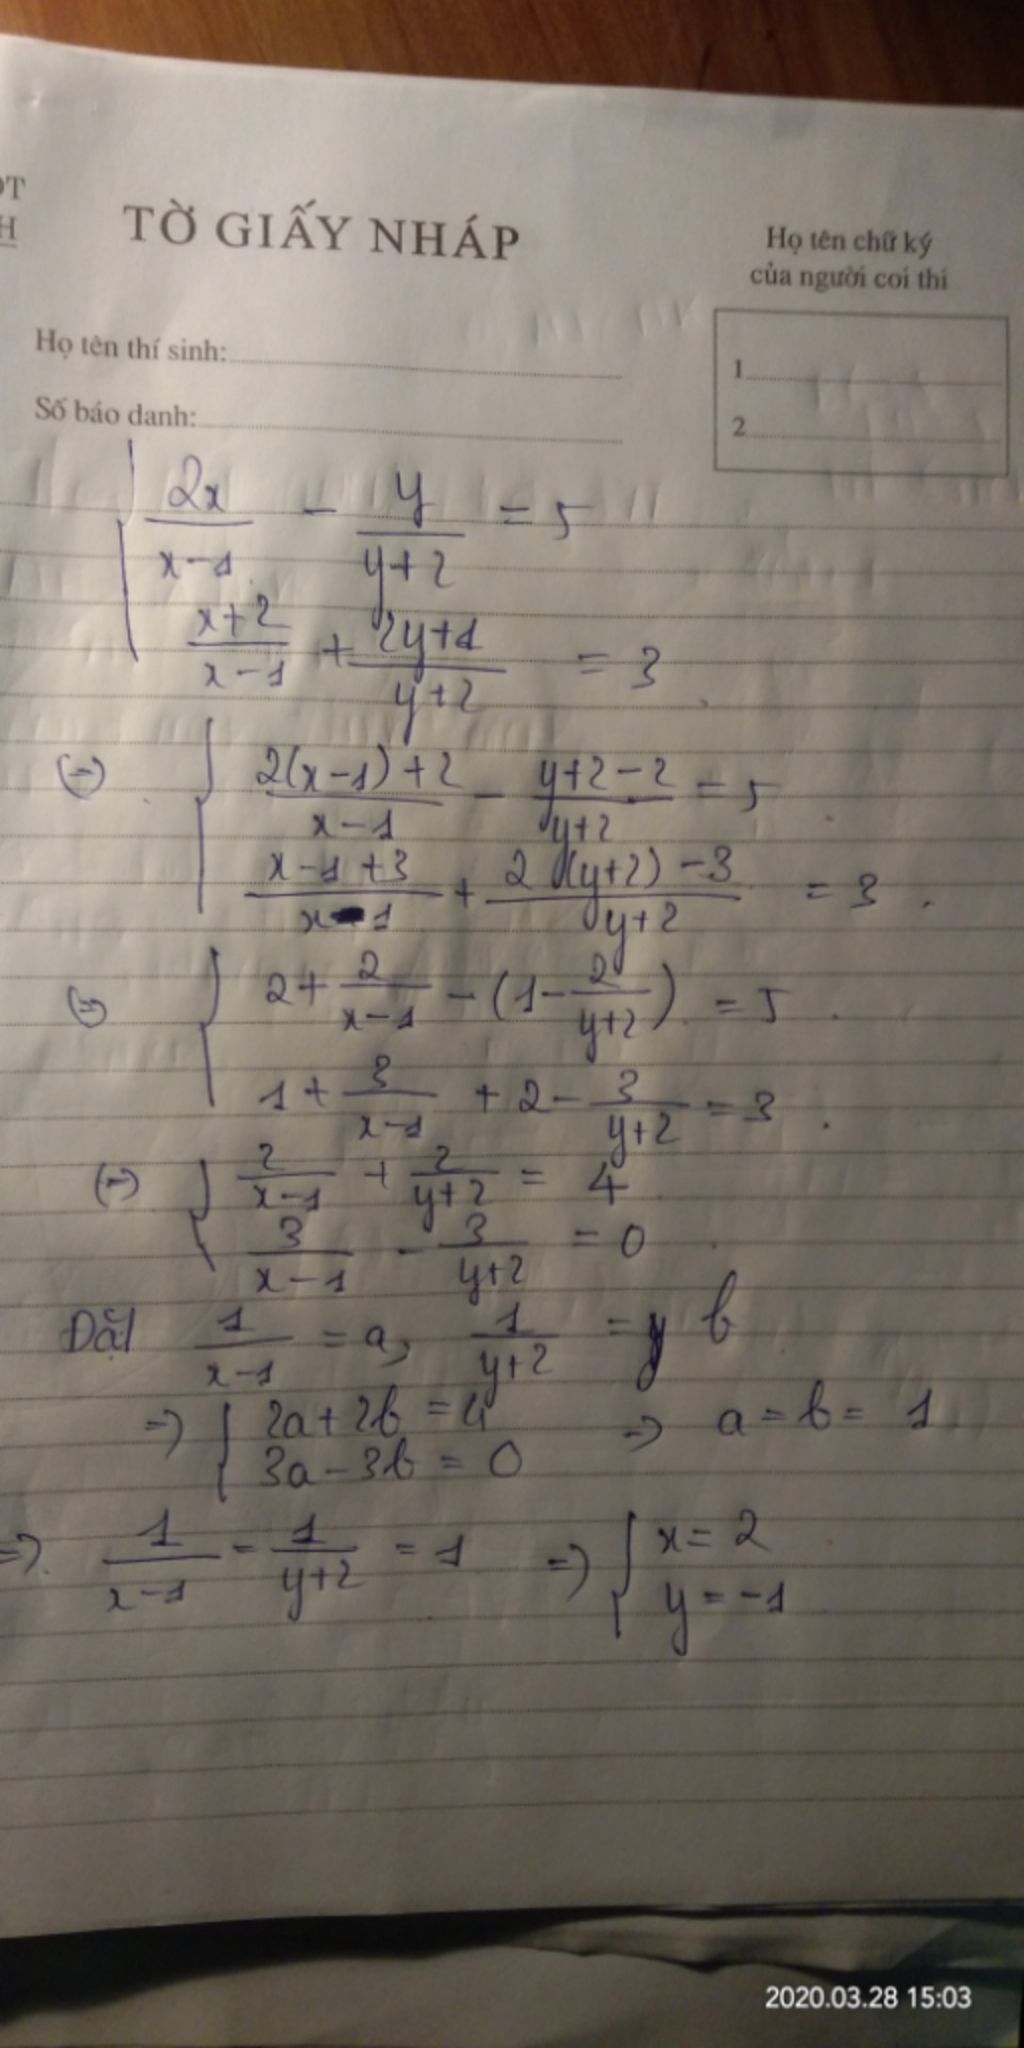 ĐT
H
TỜ GIẤY NHÁP
Họ tên chữ ký
của người coi thi
Họ tên thí sinh:
1
Số báo danh:
2
{ 2x/(x-1) - y/(y+2) = 5
(x+2)/(x-1) + (2y+1)/(y+2) = 3
(=) { (2(x-1)+2)/(x-1) - (y+2-2)/(y+2) = 5
(x-1+3)/(x-1) + (2(y+2)-3)/(y+2) = 3.
(=) { 2 + 2/(x-1) - (1 - 2/(y+2)) = 5.
1 + 3/(x-1) + 2 - 3/(y+2) = 3.
(=) { 2/(x-1) + 2/(y+2) = 4
3/(x-1) - 3/(y+2) = 0.
Đặt 1/(x-1) = a, 1/(y+2) = b
=) { 2a+2b = 4 =) a = b = 1.
3a-3b = 0
=). 1/(x-1) = 1/(y+2) = 1 =) { x = 2
y = -1
2020.03.28 15:03